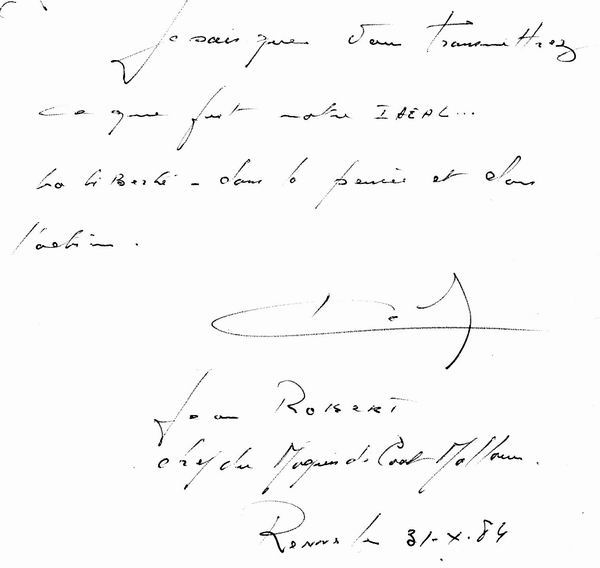 Je sais que vous transmettrez
ce que fut notre IDEAL...
La liberté - dans la pensée et dans
l'action.
Jean ROBERT
chef du Maquis de Coat Mallouen.
Rennes le 31-X-84